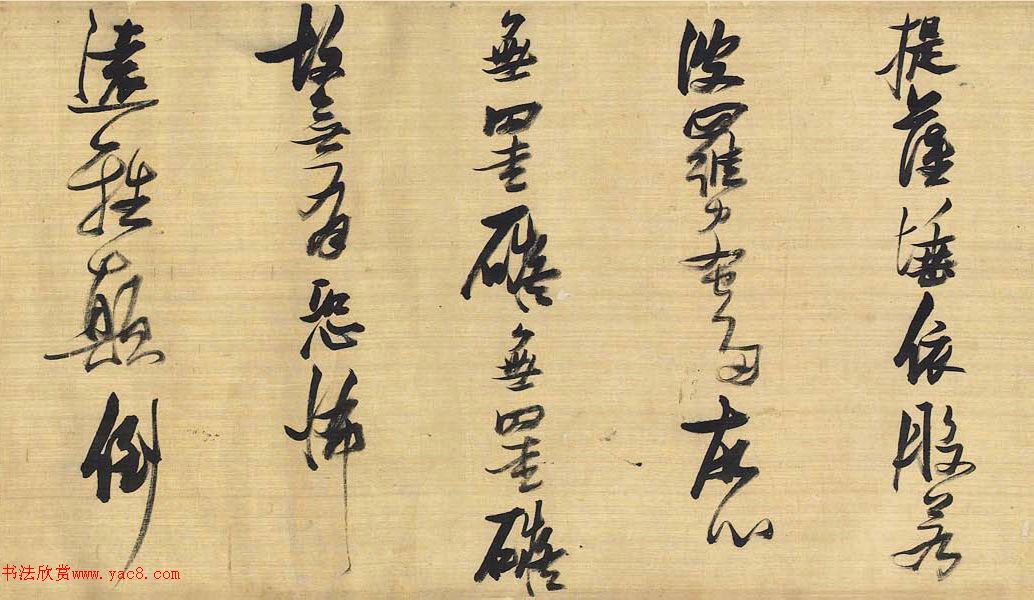 提薩埵依般若
波羅蜜多故心
無罣礙無罣礙
故無有恐怖
遠離顛倒
书法欣赏www.yac8.com